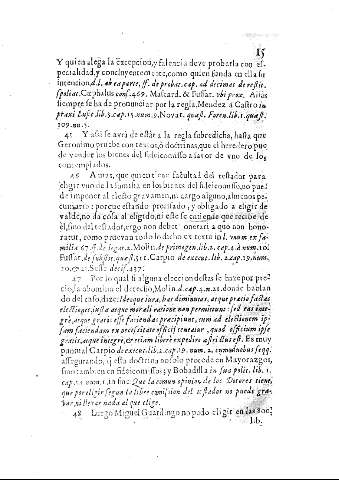 15
Y quien alega la excepcion, y falencia deve probarla con es-
pecialidad, y concluyentemente, como quien funda en ella su
intencion, d. l. ab ea parte, ff. de probat. cap. ad decimas de restit.
spoliat. Cephalus cons. 469. Mascard. & Fussar. ubi prox. Antes
siempre se ha de pronunciar por la regla, Mendez à Castro in
praxi Lusit. lib. 3. cap. 15. num. 9. Novar. quæst. Foren. lib. 1. quæst.
109. nu. 5.
45 Y assi se avrà de estàr à la regla sobredicha, hasta que
Geronimo pruebe con textos, ò doctrinas, que el heredero puo-
de vender los bienes del fideicomisso à favor de uno de los
contemplados.
46 A mas, que quien con facultad del testador para
eligir uno de la familia en los bienes del fideicomisso, no pue-
de imponer al electo gravamen, ni cargo alguno, aunque pe-
cuniario: porque estando precissado, y obligado à eligir de
valde, no dà cosa al eligido, ni este se entiende que recibe de
èl, sino del testador, ergo non debet onerari à quo non hono-
ratur, como prueban todo lo dicho ex texto in l. unum ex fa-
milia 67. ff. de legat. 2. Molin. de primogen. lib. 2. cap. 4. num. 10.
Fussar. de substit. quæst. 511. Carpio de execut. lib. 2. cap. 19. num.
20. & 21. Sesse decis. 437.
47 Por lo qual si alguna eleccion destas se haze por pre-
cio la abomina el derecho, Molin. d. cap. 4. n. 21. donde hablan-
do del caso, dize: Ideoque iura, has diminutas, atque pretio factas
electiones, iusta atque morali ratione non permittunt: sed eas inte-
grè, atque gratis esse faciendas præcipiunt, cum ad electionem ip-
sam faciendam ex necessitate officij teneatur, quod officium ipse
gratis, atque integrè, & etiam liberè explere astrictus est. Es muy
puntual Carpio de execut. lib. 2. cap. 19. num. 2. cum duobus seqq.
assegurando, q̃ esta doctrina no solo procede en Mayorazgos,
sino tambien en fideicomissos; y Bobadilla in sua polit. lib. 1.
cap. 12. num. 1. in fine. Que la comun opinion de los Dotores tiene,
que por eligir segun la libre comission del testador no puede gra-
var, ni llevar nada al que elige.
48 Luego Miguel Guardingo no pudo eligir en las 800.
lib.